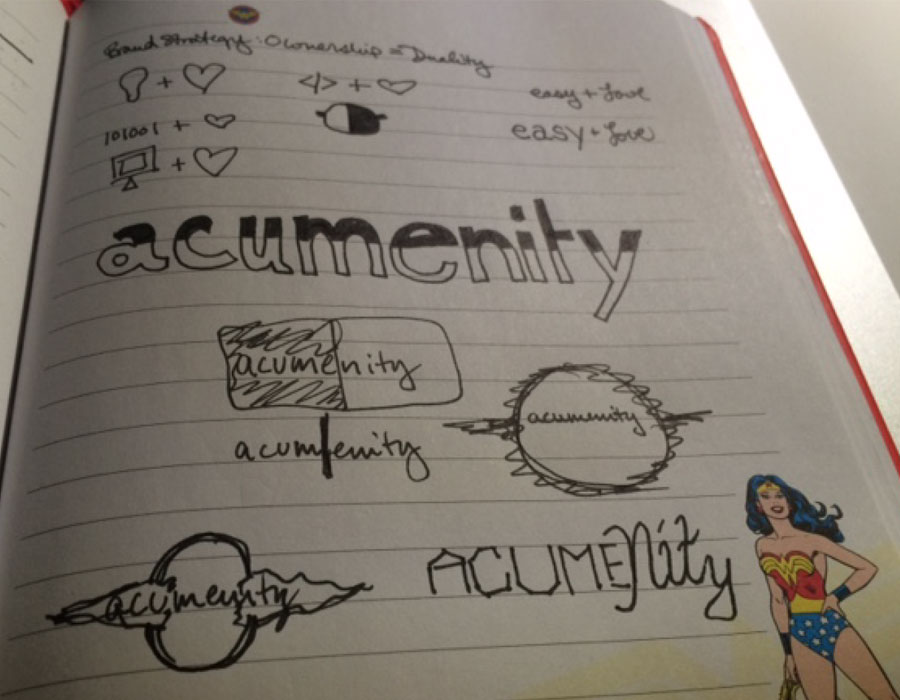 Brand Strategy: Ownership = Duality
</> +
easy + love
101001 +
easy + love
acumenity
acumenity
acumenity
acumenity
acumenity
ACUMENity